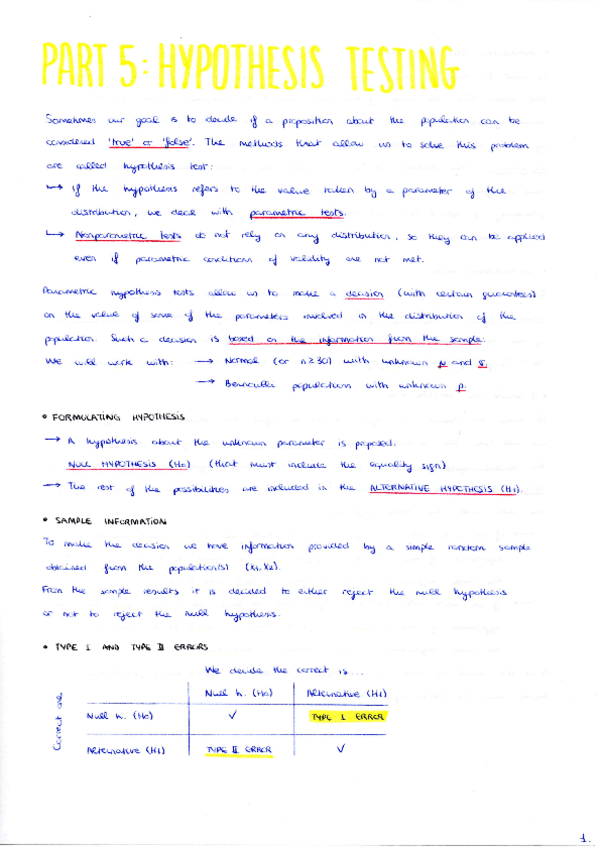 PART 5: HYPOTHESIS TESTING
Sometimes our goal is to decide if a proposition about the population can be
considered 'true' or 'false'. The methods that allow us to solve this problem
are called hypothesis test:
↳ If the hypothesis refers to the value taken by a parameter of the
distribution, we deal with parametric tests.
↳ Nonparametric tests do not rely on any distribution, so they can be applied
even if parametric conditions of validity are not met.
Parametric hypothesis tests allow us to make a decision (with certain guarantees)
on the value of some of the parameters involved in the distribution of the
population. Such a decision is based on the information from the sample.
We will work with: → Normal (or n≥30) with unknown μ and σ.
→ Bernoulli populations with unknown p.
• FORMULATING HYPOTHESIS
→ A hypothesis about the unknown parameter is proposed.
NULL HYPOTHESIS (H0) (that must include the equality sign)
→ The rest of the possibilities are included in the ALTERNATIVE HYPOTHESIS (H1).
• SAMPLE INFORMATION
To make the decision we have information provided by a simple random sample
obtained from the population(s) (X1, X2).
From the sample results it is decided to either reject the null hypothesis
or not to reject the null hypothesis.
• TYPE I AND TYPE II ERRORS
We decide the correct is...
Null h. (H0) Alternative (H1)
Correct one
Null h. (H0) ✓ TYPE I ERROR
Alternative (H1) TYPE II ERROR ✓
1.